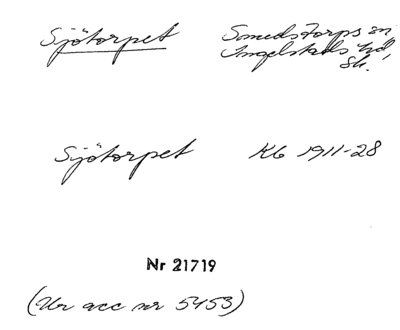 Sjötorpet
Smedstorps sn
Ingelstads hd
Sk.
Sjötorpet
Kb 1911-28
Nr 21719
(Ur acc nr 5453)